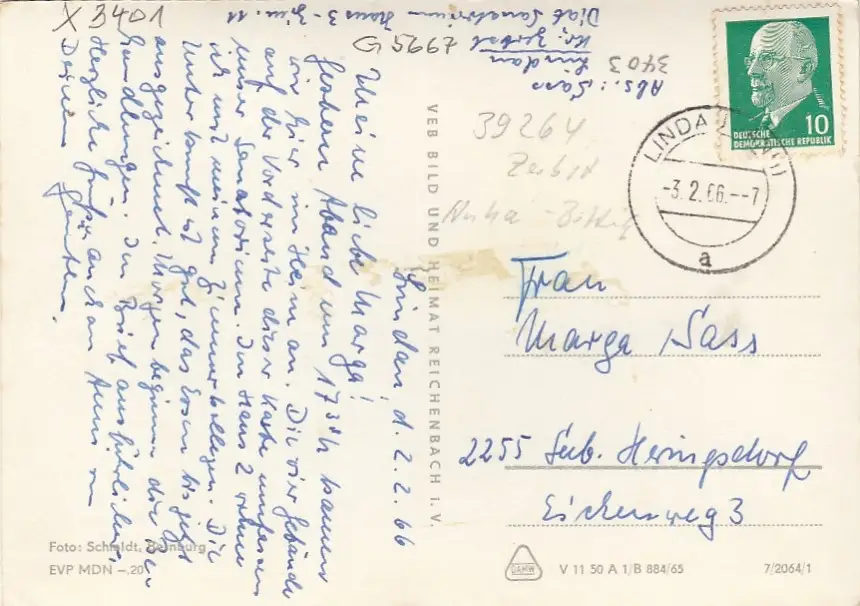 X 3401
G 5997
Abs.: Sass
3403 Lindau
Kr. Zerbst
Diät Sanatorium Haus 3 - Zim. 11
Lindau, d. 2.2.66
Meine liebe Marga!
Gestern Abend um 17³⁰h kamen
wir hier im Heim an. Die vier Gebäude
auf der Vorderseite dieser Karte umfassen
unser Sanatorium. Im Haus 2 wohne
ich mit meinen Zimmerkollegen. Die
Unterkunft ist gut, das Essen bis jetzt
ausgezeichnet. Morgen beginnen die Be
handlungen. Im Brief ausführlicher.
Herzliche Grüße auch an von
Deinem
VEB BILD UND HEIMAT REICHENBACH i. V.
10
DEUTSCHE
DEMOKRATISCHE REPUBLIK
LINDAU
-3.2.66.--7
a
39264
Zerbst
Frau
Marga Sass
2255 Seeb. Heringsdorf
Eichenweg 3
Foto: Schmidt, Bernburg
EVP MDN -,20
DAMW
V 11 50 A 1/B 884/65
7/2064/1